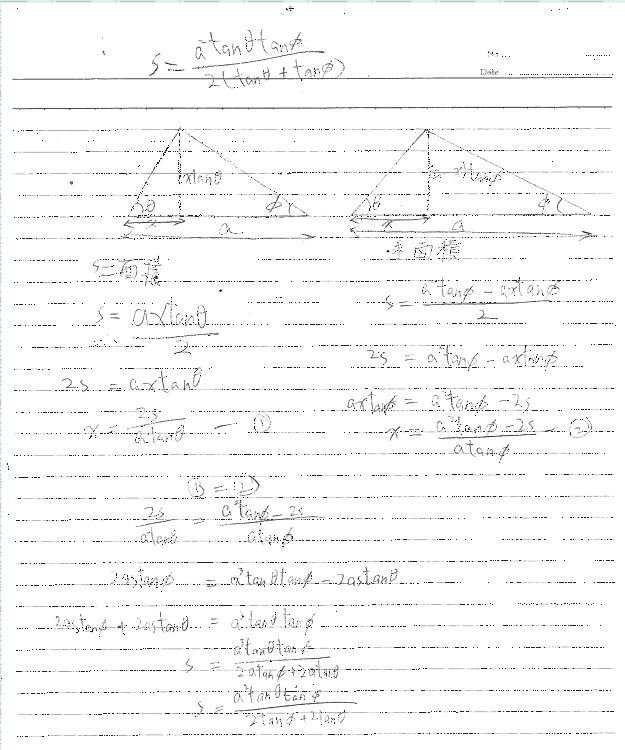 S = a²tanθtanφ / 2(tanθ + tanφ)
No.
Date
xtanθ
θ
φ
x
a
(a-x)tanφ
θ
φ
x
a
S=面積
S = axtanθ / 2
2S = axtanθ
x = 2S / atanθ — ①
面積
S = a²tanφ - axtanφ / 2
2S = a²tanφ - axtanφ
axtanφ = a²tanφ - 2S
x = a²tanφ - 2S / atanφ — ②
① = ②
2S / atanθ = a²tanφ - 2S / atanφ
2aStanφ = a²tanθtanφ - 2aStanθ
2aStanφ + 2aStanθ = a³tanθtanφ
S = a³tanθtanφ / 2atanφ+2atanθ
S = a²tanθtanφ / 2tanφ+2tanθ